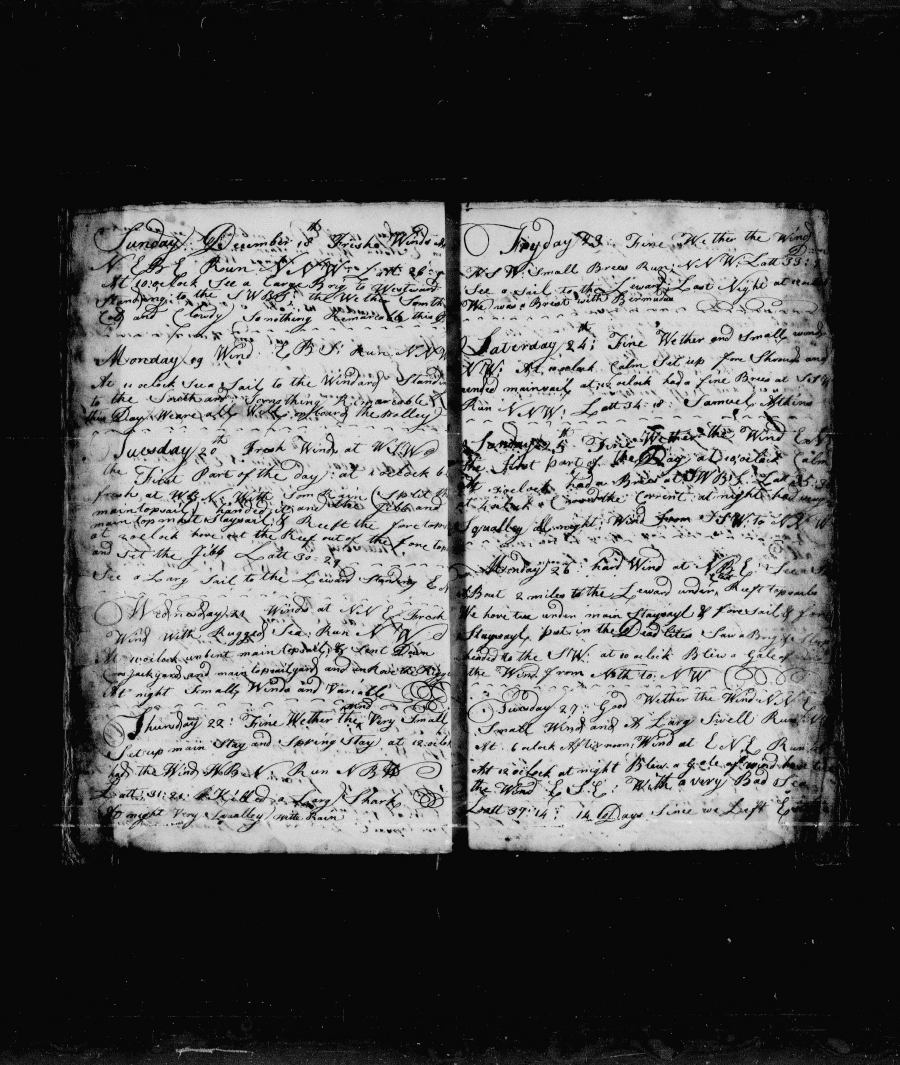 Sunday December 18th Fresh Winds
N E B E Run N N W Latt 26
At 10 oclock See a Large Brig to Westward
Standing to the S W B S: the Wether Som th
Cold and Clowdy Something Remarcable this
Monday 19 Wind E B S: Run N N W
At 11 oclock See a Sail to the Windard Stand
to the Southard Something Remarcable
this Day We are all Well on board the Polley
Tuesday 20th Fresh Winds at W S W
the First Part of the Day: at 1 oclock
fresh at W B N: With Som Rain Split
main topsail handed it and the Jibb and
main topmast Staysail & Reeft the fore tops
at 2 oclock hove out the Reef out of the fore top
and Set the Jibb Latt 30-29
See a Larg Sail to the Leward Standing E
Wednesday 21 Winds at N N E Fresh
Wind With Rugged Sea. Run N W
At 10 oclock unbent main topsail & Sent Down
Crosjackyard and main topsailyard and
At night Smally Winds and Variable
Thursday 22: Fine Wether the wind Very Small
Set up main Stay and Spring Stay at 12 oclok
had the Wind W B N Run N B W
Latt: 31:21: Killed a Larg Shark
At night Very Squalley with Rain
Fryday 23: Fine Wether the Wind
W S W Small Brees Run N N W: Latt 33:
See a Sail to the Leward Last Night at
We was a Brest with Bermudas
Saterday 24: Fine Wether and Small wind
N W: At 10 oclock Calm Set up fore Shrouds and
mended mainsail at 12 oclock had a fine Brees at
Run N N W: Latt 34:18: Samuel Atkins
Sunday 25th Fine Wether the Wind E
the first part of the Day at 10 oclock Calm
At oclock had a Brees at S W B S: Lat 35:
at 4 oclock Crowd the Corrent at night had
Squalley all night, Wind from S S W. to N
Monday 26: hard Wind at N B E See a
at Bout 2 miles to the Leward under Reeft topsails
We have two under main Staysayl & fore Sail & fore
Staysayl, put in the Dead lites Saw a Brig
headed to the S W. at 10 oclock Blew a Gale of
the Wind from North to: N W
Tuesday 27: Good Wether the Wind N N E
Small Wind and A Larg Swell Run
At 6 oclock Afternoon Wind at E N E Run
At 12 oclock at night Blew a gale of wind
the Wind E S E: With a very Bad Sea
Latt 37:14: 14 Days Since we Left